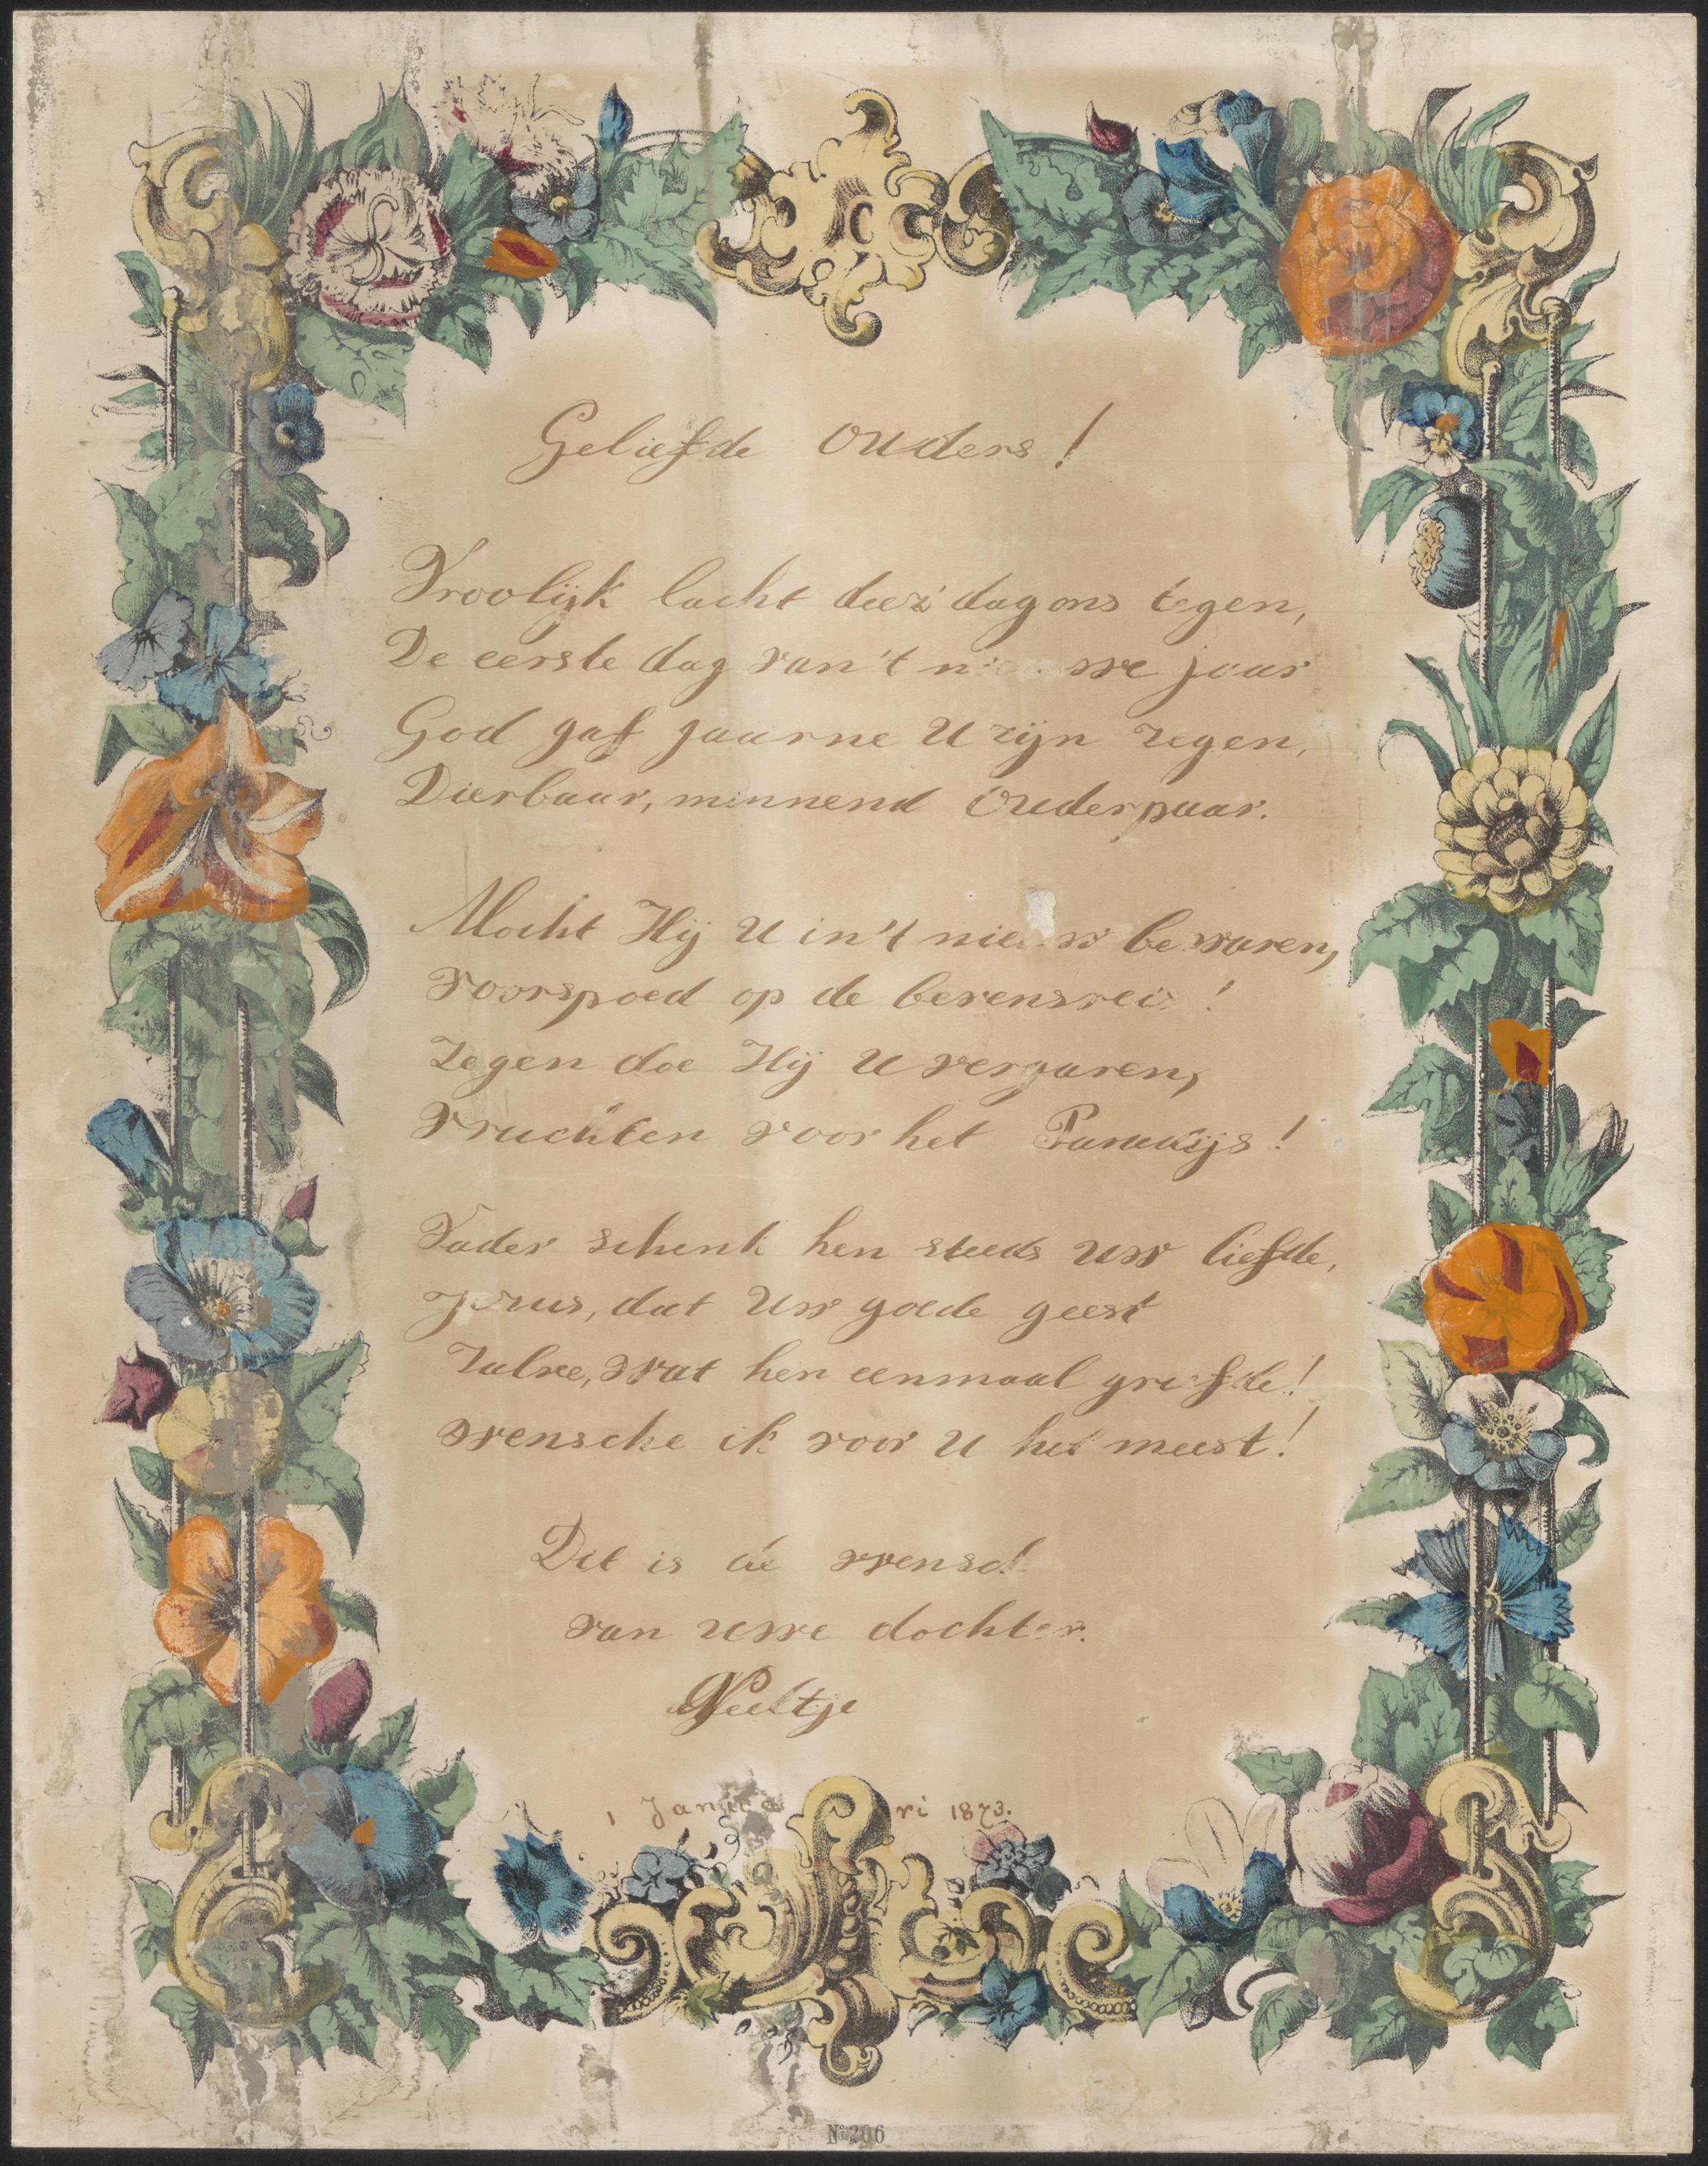 Geliefde Ouders!
Vroolijk lacht deez' dag ons tegen,
De eerste dag van't nieuwe jaar
God gaf gaarne U zijn zegen,
Dierbaar, minnend Ouderpaar.
Mocht Hij U in't nieuw bewaren,
Voorspoed op de levensreis!
Zegen doe Hij U vergaren,
Vruchten voor het Paradijs!
Vader schenk hen steeds Uw liefde,
Jezus, dat Uw goede geest
Zalve, Wat hen eenmaal griefde!
Wensche ik voor U het meest!
Dit is de wensch
van Uwe dochter.
Neeltje
1 Januari 1873.
No 206